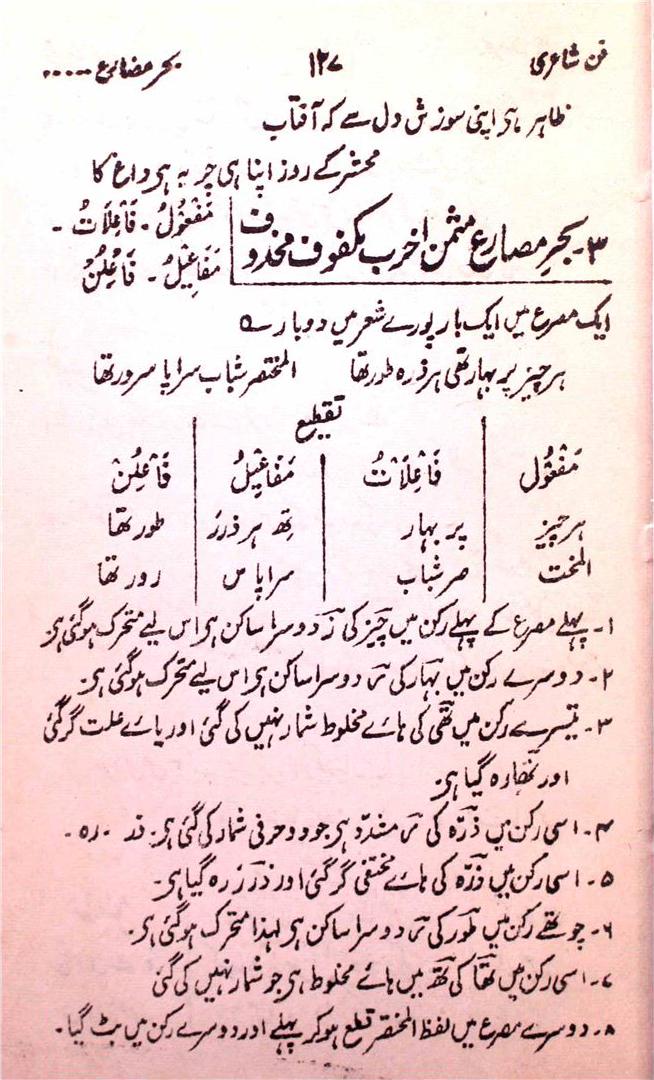 فن شاعری ۱۲۷ بحر مضارع .....
ظاہر ہے اپنی سوزش دل سے کہ آفتاب
محشر کے روز اپنا ہی چربہ ہے داغ کا
۳- بحرِ مضارع مثمن اخرب مکفوف محذوف
مَفْعُوْلُ - فَاعِلَاتُ -
مَفَاعِیْلُ - فَاعِلُنْ
ایک مصرع میں ایک بار پورے شعر میں دو بار ے
ہر چیز پر بہار تھی ہر ذرہ طور تھا المختصر شباب سراپا سرور تھا
تقطیع
مَفْعُوْل فَاعِلَاتُ مَفَاعِیْلُ فَاعِلُنْ
ہر چیز پر بہار تھ ہر ذرر طور تھا
المخت صر شباب سراپا س رور تھا
۱- پہلے مصرع کے پہلے رکن میں چیز کی ز دوسرا ساکن ہے اس لیے متحرک ہوگئی ہے۔
۲- دوسرے رکن میں بہار کی ر دوسرا ساکن ہے اس لیے متحرک ہوگئی ہے۔
۳- تیسرے رکن میں تھی کی ہائے مخلوط شمار نہیں کی گئی اور یائے علت گر گئی
اور تھ رہ گیا ہے۔
۴- اسی رکن میں ذرّہ کی ر مشدّد ہے جو دو حرفی شمار کی گئی ہے۔
۵- اسی رکن میں ذرّہ کی ہائے مختفی گر گئی اور ذرر رہ گیا ہے۔
۶- چوتھے رکن میں طور کی ر دوسرا ساکن ہے لہذا متحرک ہوگئی ہے۔
۷- اسی رکن میں تھا کی تھ میں ہائے مخلوط ہے جو شمار نہیں کی گئی
۸- دوسرے مصرع میں لفظ المختصر قطع ہو کر پہلے اور دوسرے رکن میں بٹ گیا۔